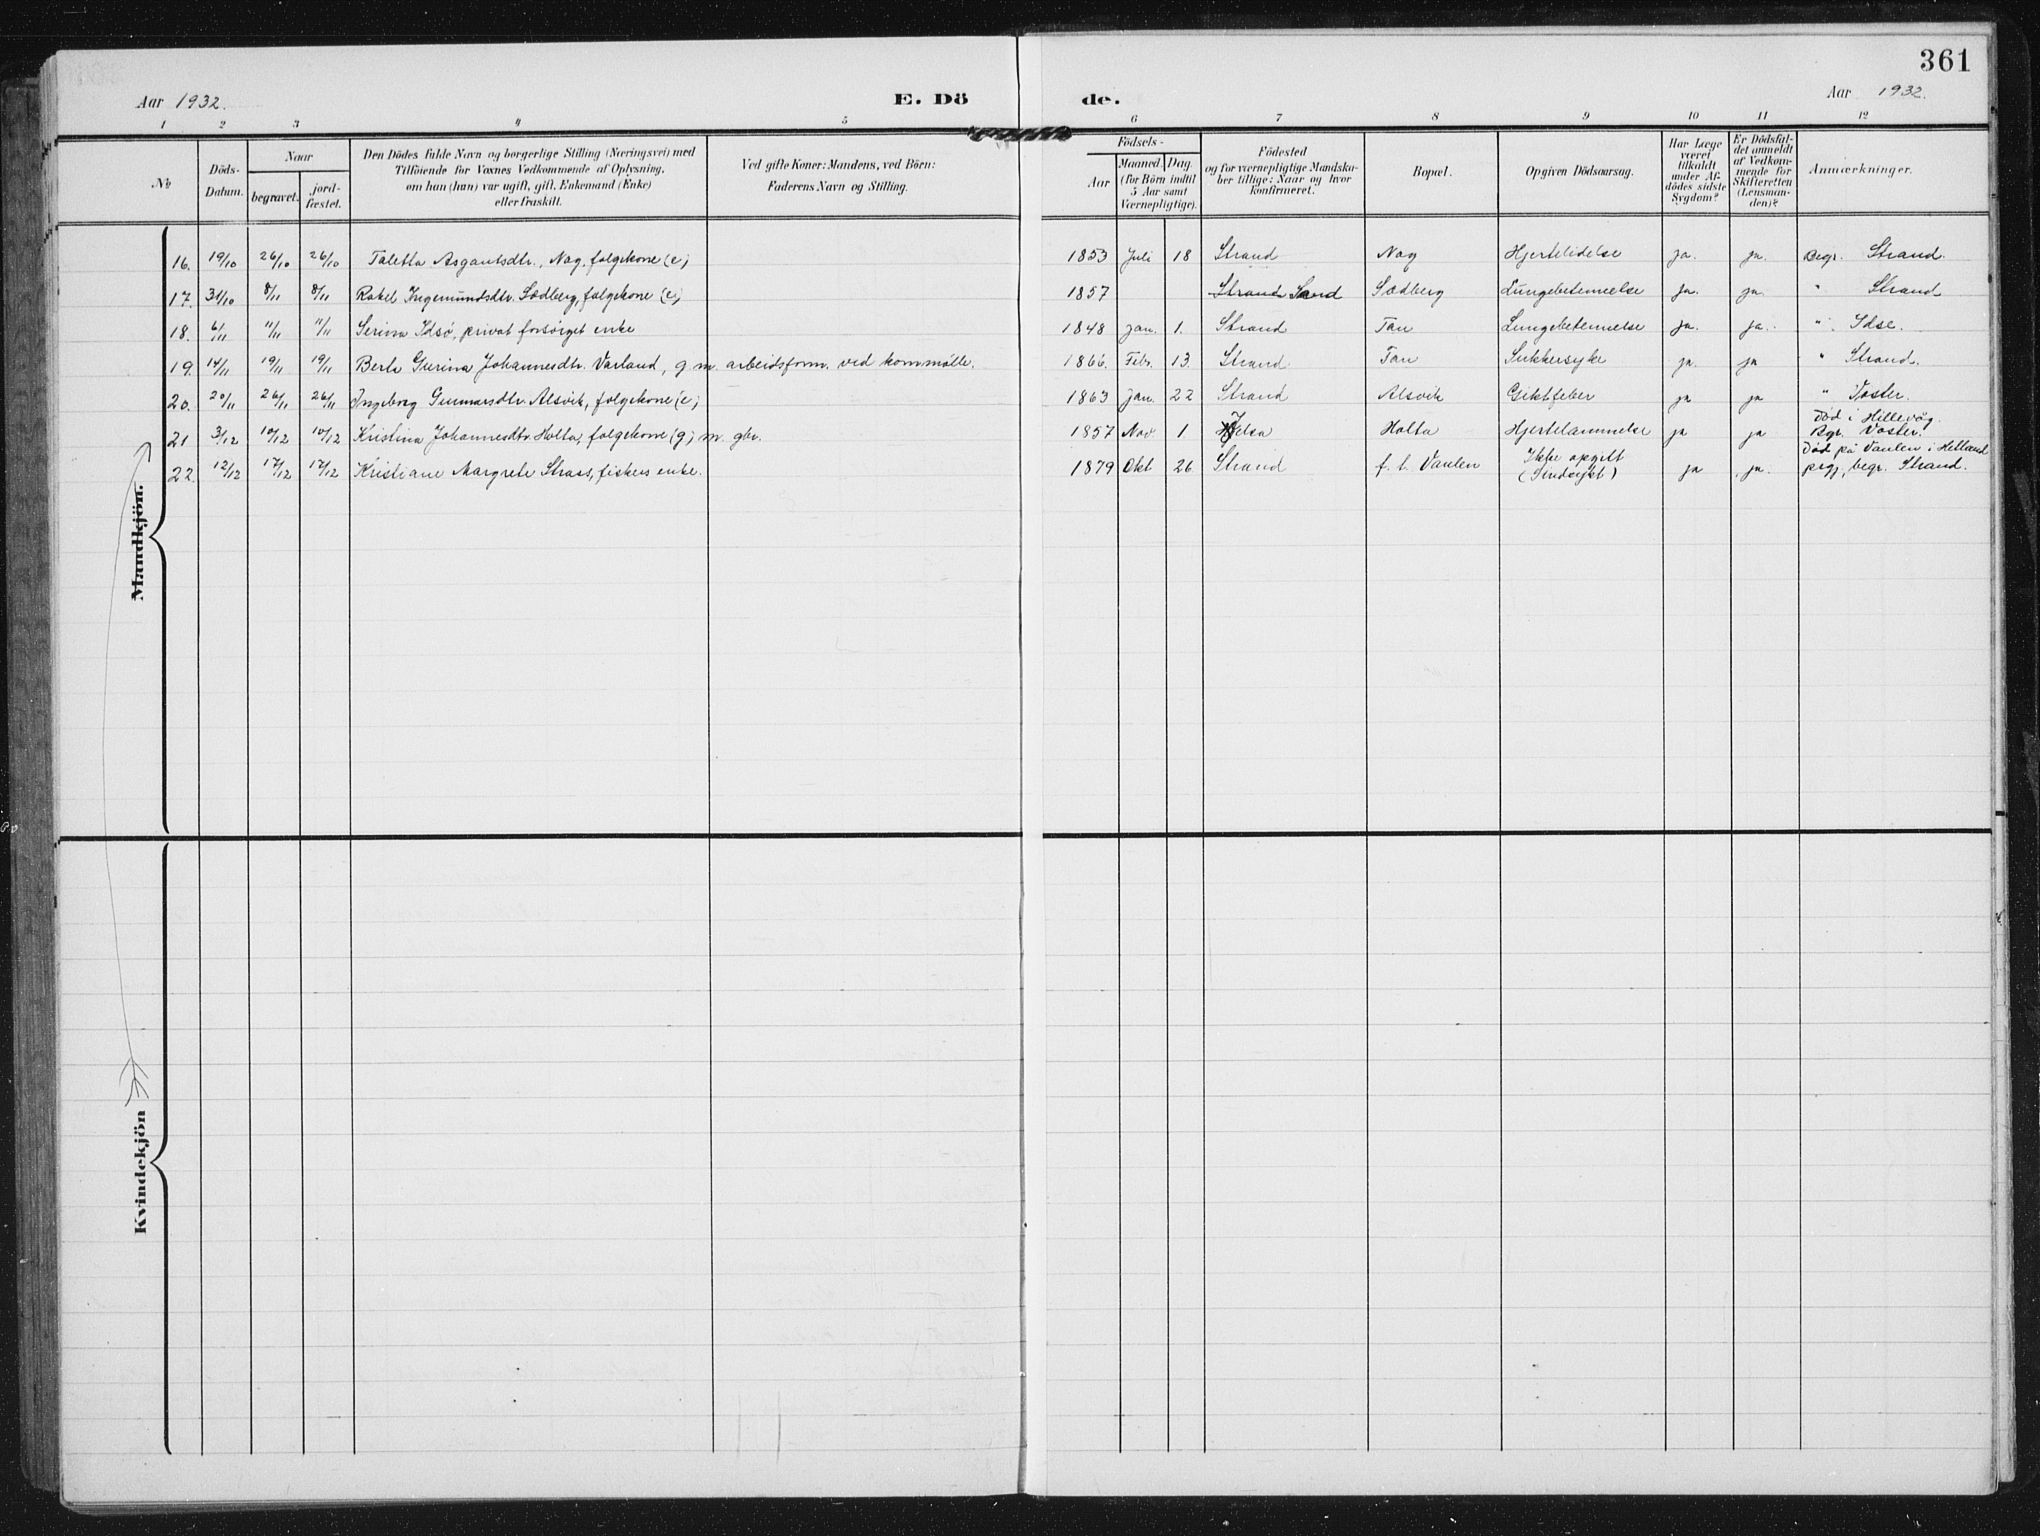 361
Aar 1932. E. Dö de. Aar 1932.
1 2 3 4 5 6 7 8 9 10 11 12
No
Döds-Datum.
Naar
begravet.
jord-fæstet.
Den Dödes fulde Navn og borgerlige Stilling (Næringsvei) med
Tilföiende for Voxnes Vedkommende af Oplysning,
om han (hun) var ugift, gift, Enkemand (Enke)
eller fraskilt.
Ved gifte Koner: Mandens, ved Börn:
Faderens Navn og Stilling.
Födsels-
Aar
Maaned. Dag.
(for Börn indtil
5 Aar samt
Værnepligtige).
Födested
og for værnepligtige Mandska-
ber tillige: Naar og hvor
konfirmeret.
Bopæl.
Opgiven Dödsaarsag.
Har Læge
været
tilkaldt
under Af-
dödes sidste
Sygdom?
Er Dödsfal-
det anmeldt
af Vedkom-
mende for
Skifteretten
(Lensman-
den)?
Anmærkninger.
16. 19/10 26/10 26/10 Taletta Asgautsdtr., Nag, folgekone (e) 1853 Juli 18 Strand Nag Hjertelidelse ja. ja. Begr. Strand.
17. 31/10 8/11 8/11 Rakel Ingemundsdtr. Sødberg, folgekone (e) 1857 Strand Sand Sødberg Lungebetennelse ja. ja. " Strand
18. 6/11 11/11 11/11 Serina Idsø, privat forsörget enke 1848 jan. 1. Strand Tau Lungebetennelse ja. ja. " Idse.
19. 14/11 19/11 19/11 Berta Gurina Johannesdtr. Varland, g m. arbeidsform. ved kornmølle. 1866. Febr. 13. Strand Tau Sukkersyke ja. ja " Strand.
20. 20/11 26/11 26/11 Ingeborg Gunnarsdtr. Alsvik, folgekone (e) 1863 jan. 22 Strand Alsvik Giktfeber ja ja " Voster.
21 3/12 10/12 10/12 Kristina Johannesdtr. Holta, folgekone (g) m. gbr. 1857 Nov. 1. Jelsa Holta Hjertelammelse ja ja Död i Hillevåg. Bgr. Voster.
22. 12/12 17/12 17/12 Kristiane Margrete Strass, fiskers enke. 1879 Okt 26 Strand f. t. Vaulen Ikke opgitt (Sindsykt) ja ja. Död på Vaulen i Hetland prgj, begr. Strand.
Mandkjön.
Kvindekjön